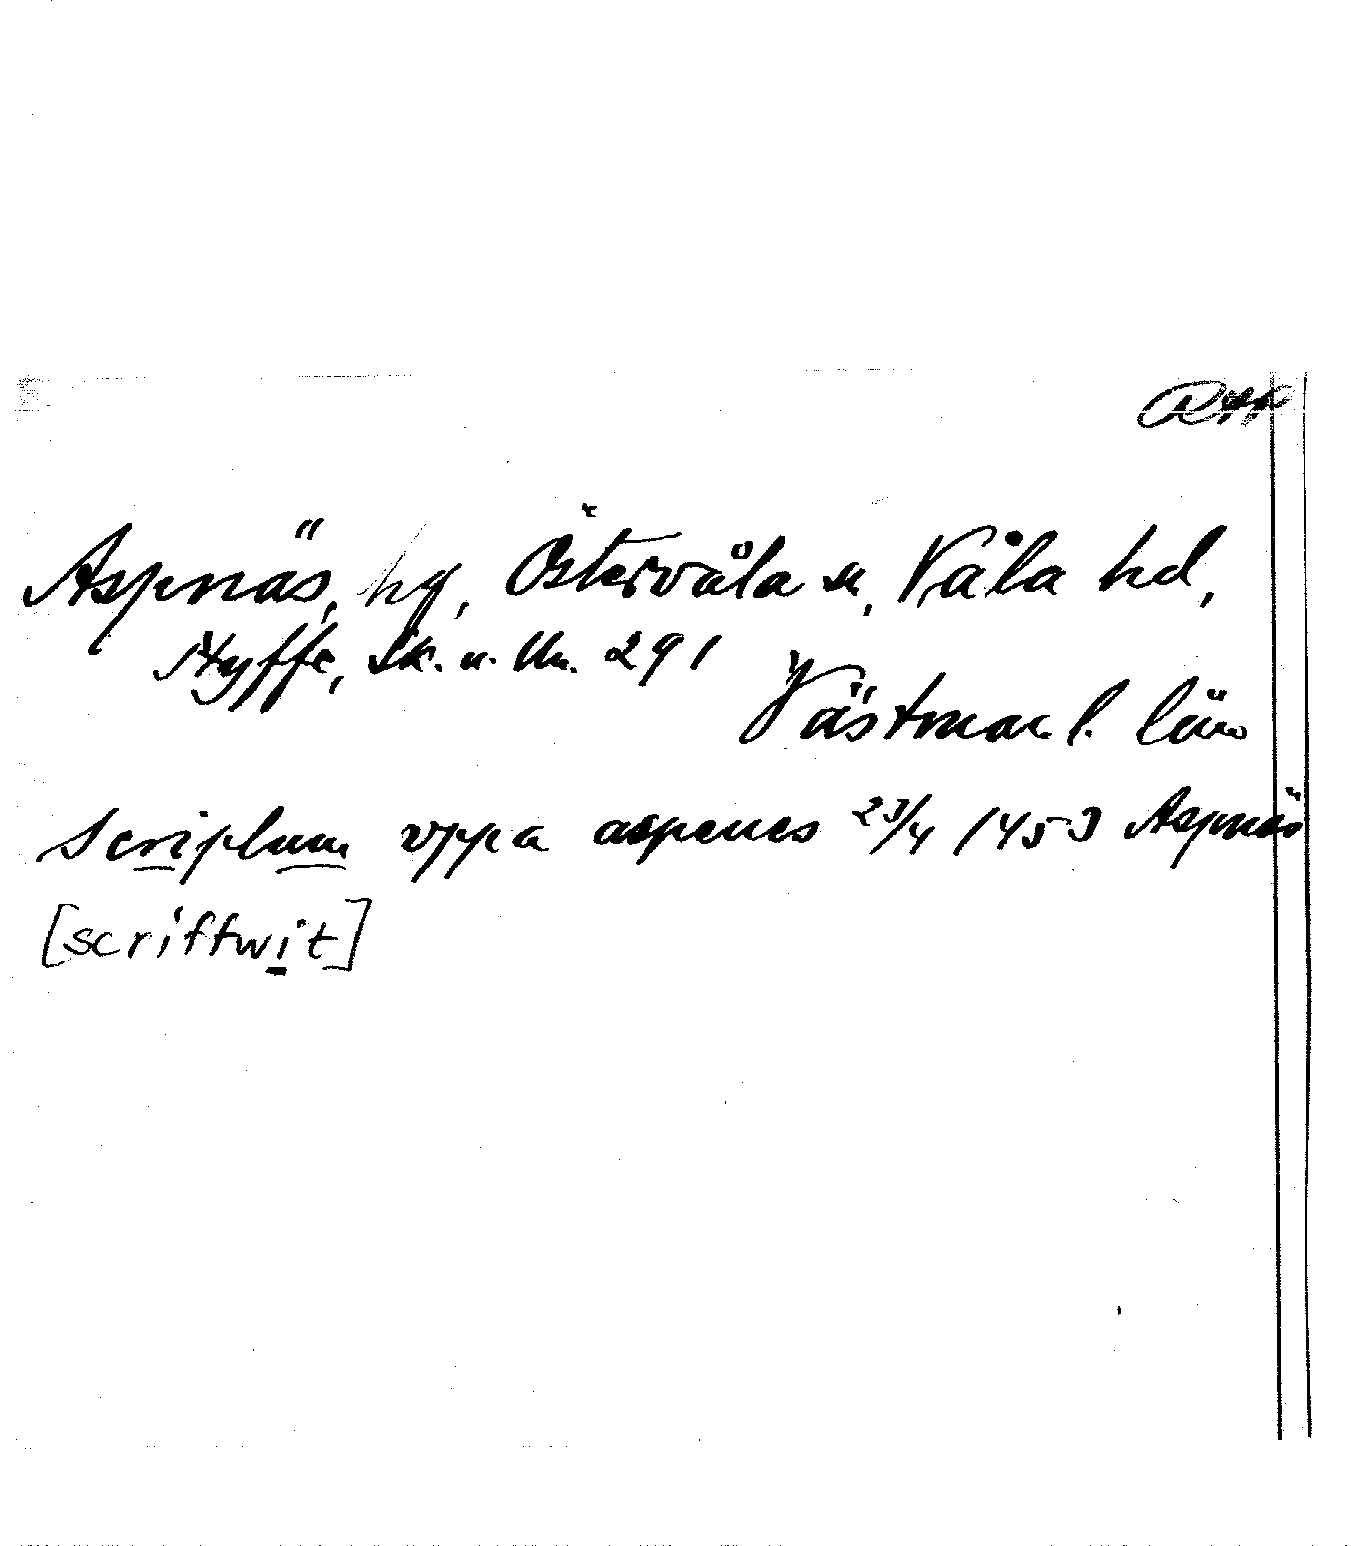 RAp
Aspnäs, hg, Östervåla sn, Våla hd,
Styffe, Sk. u. Un. 291
Västmanl. län
Scriptum vppa aspenes 23/4 1453 Aspnäs
[scriftwit]